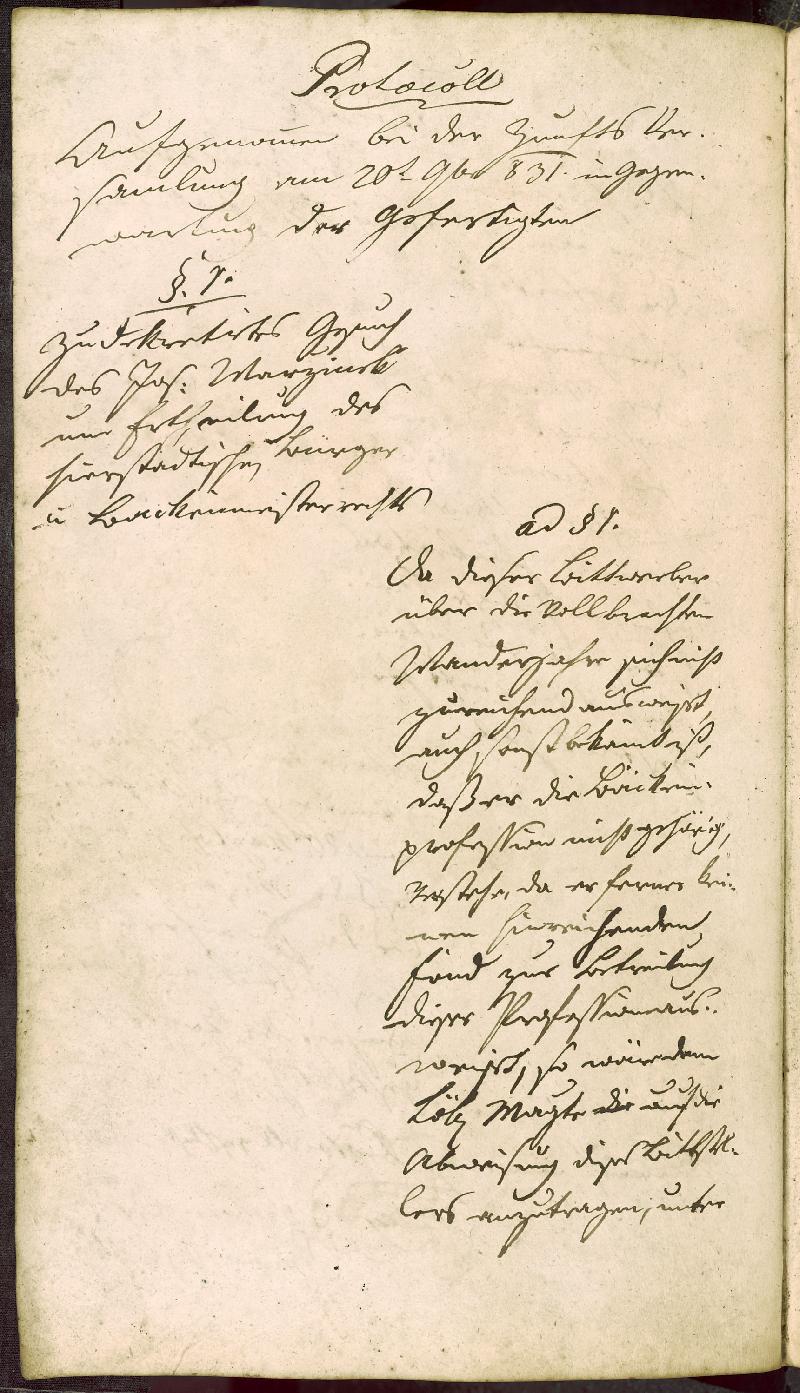 Protocoll
Aufgenomen bei der Zunfts Ver-
samlung am 20t 9br 831. in Gegen-
wartung der Gefertigten
§. 1.
Zudekretirtes Gesuch
des Jos: Warzineck
um Ertheilung des
hierstädtischen Bürger
u Bäckenmeisterrechts
ad § 1.
Da dieser Bittwerber
über die Vollbrachten
Wanderjahre sich nicht
zureichend ausweist,
auch sonst bekant ist,
daß er die Bäcken-
profession nicht gehörig,
verstehe, da er ferner kei-
nen hinreichenden
Fond zur Betreibung
dieser Profession aus-
weiset, so wäre dem
Löbl Magte die auf die
Abweisung dises Bittstel-
lers anzutragen, unter